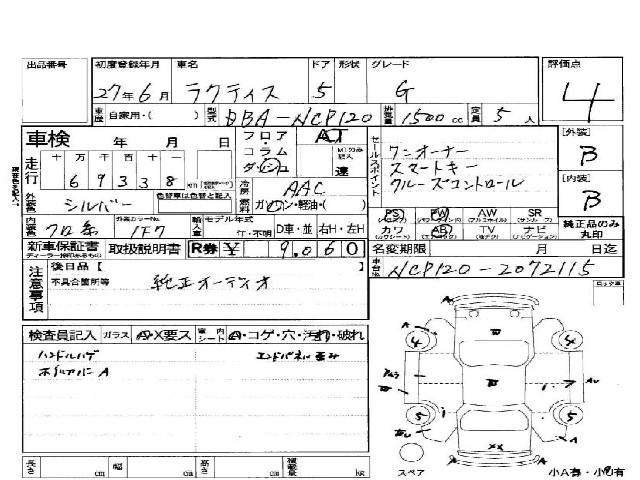 出品番号 初度登録年月 車名 ドア 形状 グレード 評価点
27年6月 ラクティス 5 G 4
車歴 自家用・( ) 型式 DBA-NCP120 排気量 1500cc 定員 5人
車検 年 月 日 フロア・コラム・ダッシュ AT セールスポイント ワンオーナー [外装] B
走行 十 万 千 百 十 一 MTのみ記入 速 スマートキー
6 9 3 3 8 km 冷房 AAC クルーズコントロール [内装] B
外装色 シルバー 色替車は色替と記入 燃料 ガソリン・軽油・( )
内装色 クロ系 外装カラーNo. 1F7 輸入車 モデル年式 D車・並 右H・左H PS PW AW SR 純正品のみ丸印
年・不明 カワ AB TV ナビ
新車保証書 取扱説明書 R券 ¥ 9,060 名変期限 月 日迄
注意事項 後日品【 】 車台No. NCP120-2072115
不具合箇所等 純正オーディオ
検査員記入 ガラス A・X要ス 車内シート A・コゲ・穴・汚れ・破れ
ハンドルハゲ エンドパネル歪み
ホイルカバーA
A 4 4 A
5 5
XX
スペア 小A有・小U有
長さ cm 幅 cm 高さ cm 積載量 kg